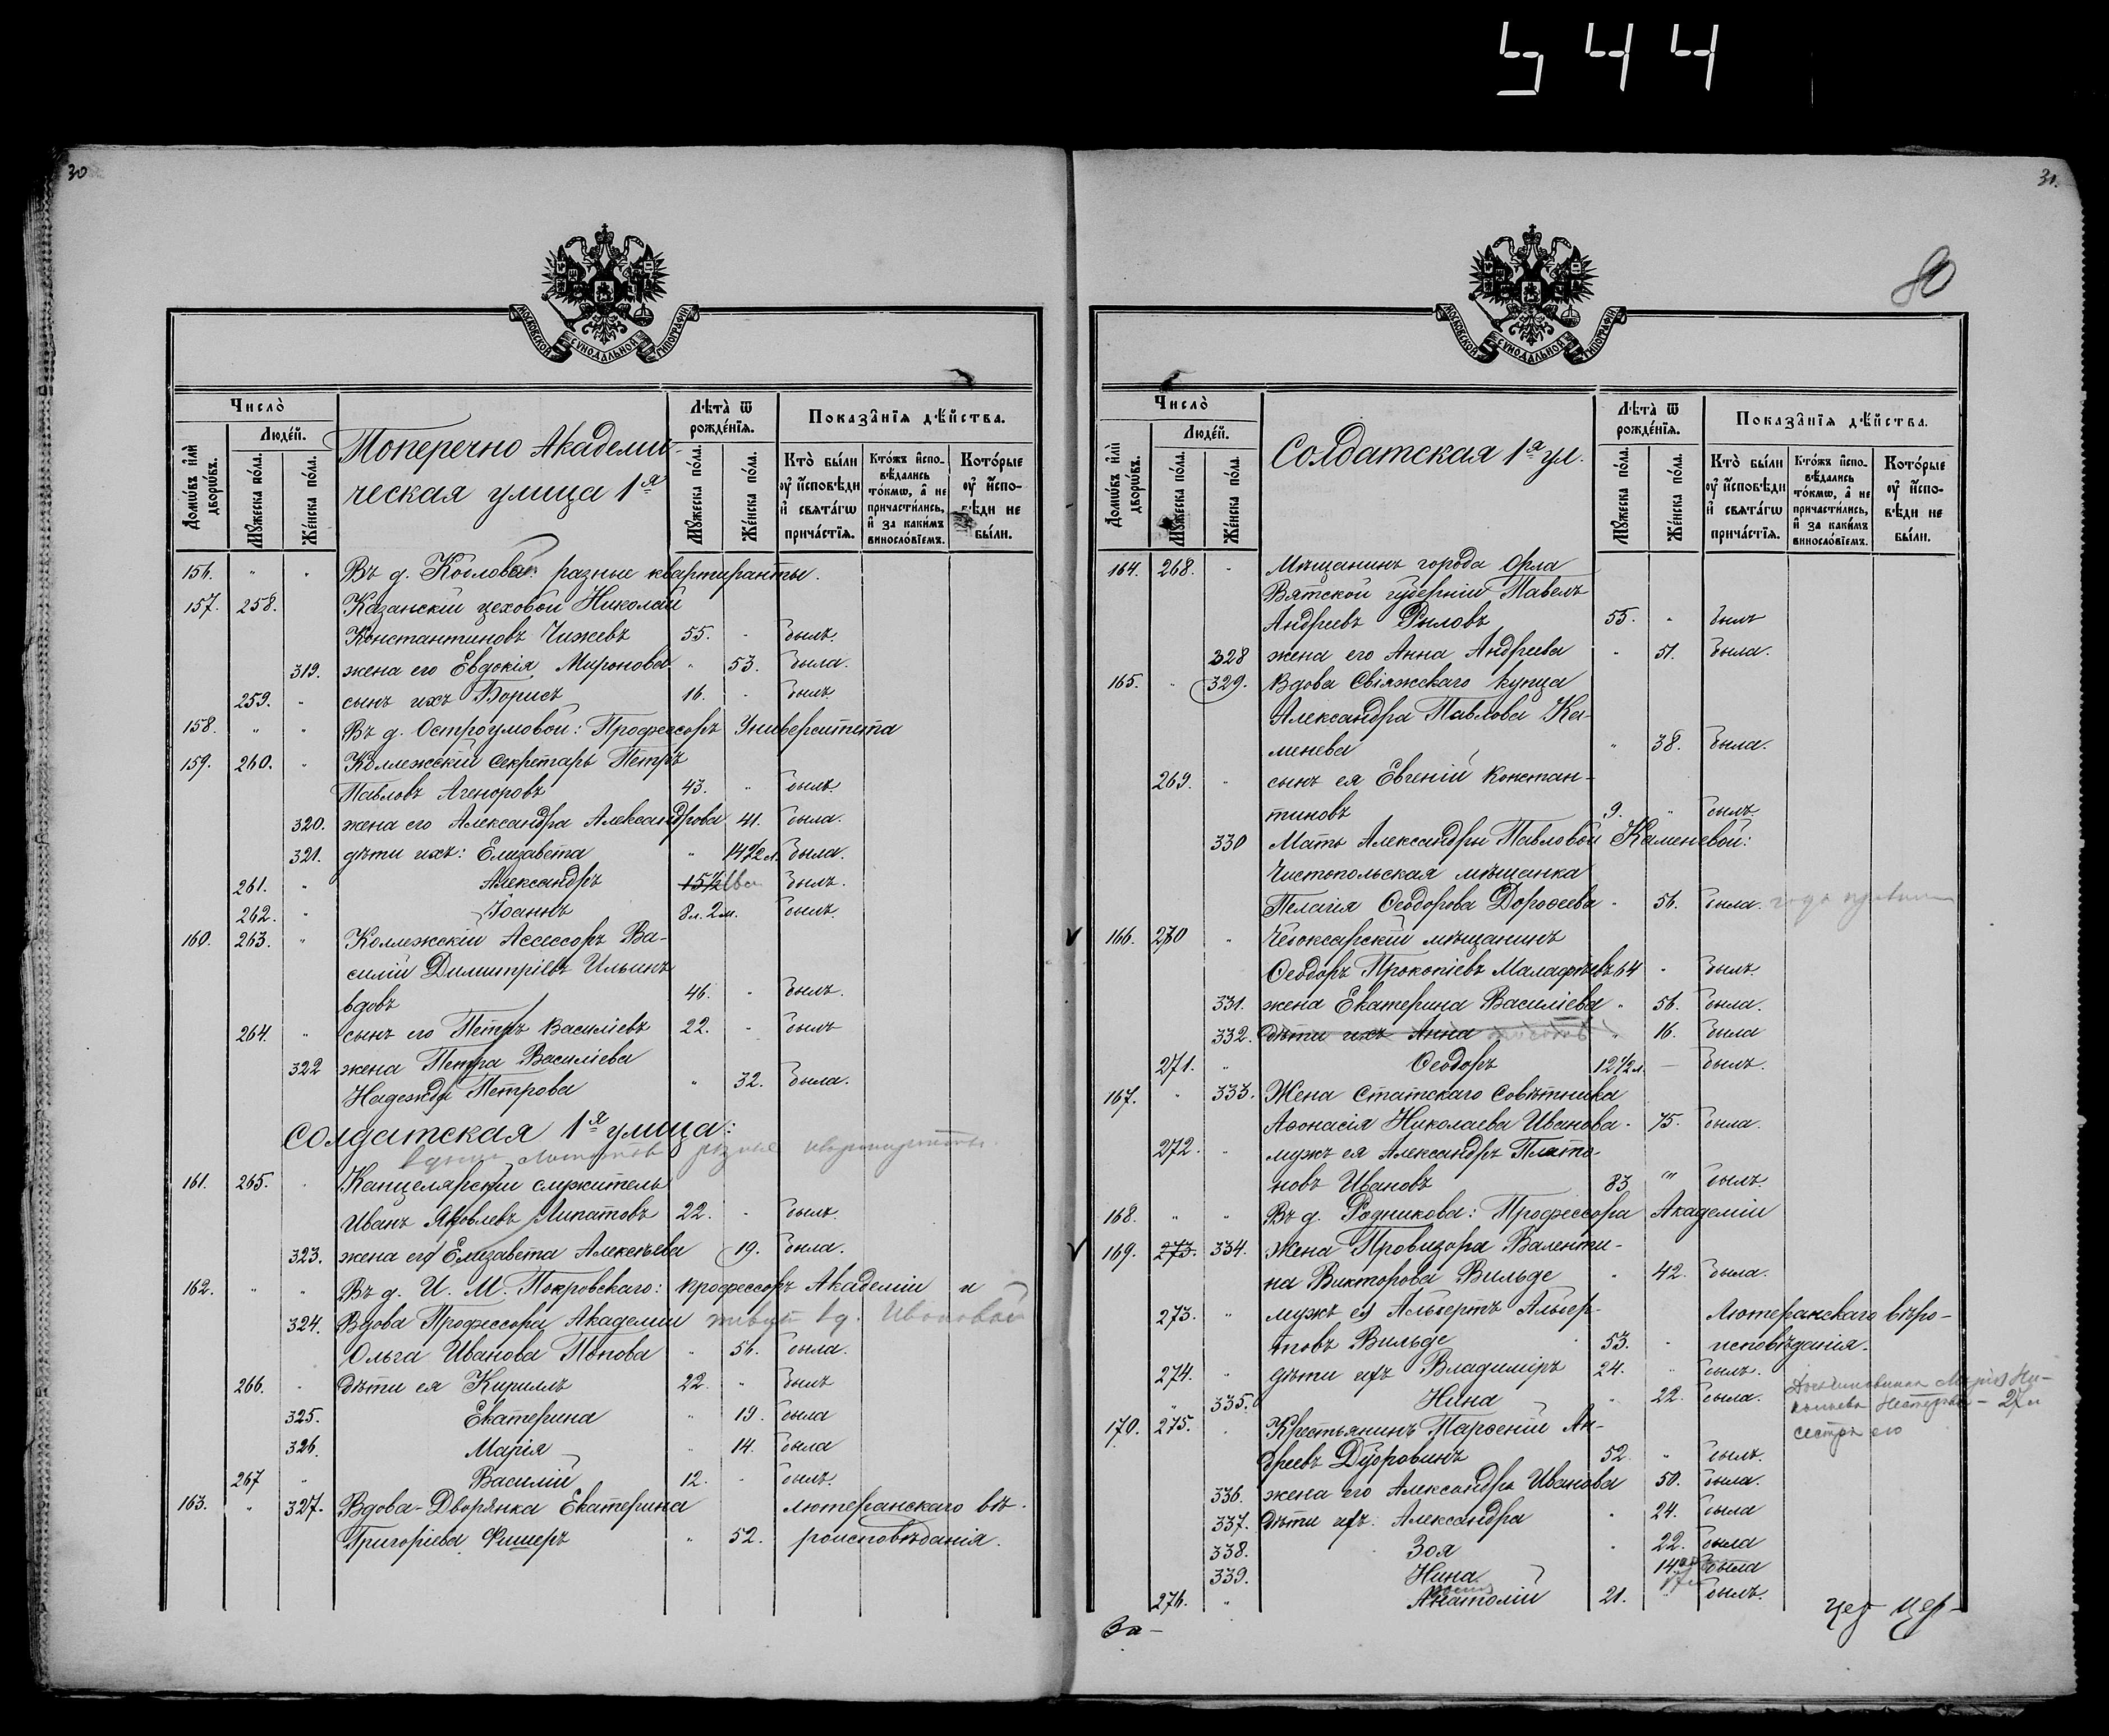 544
30
МОСКОВСКОЙ СѴНОДАЛЬНОЙ ТИПОГРАФІИ
Число̀
Людѐй.
Домѡ́въ и҆лѝ дворѡ́въ.
Мꙋ́жеска по́ла.
Же́нска по́ла.
Поперечно Академи-
ческая улица 1я
Лѣ́та ѿ рожде́нїѧ.
Мꙋ́жеска по́ла.
Же́нска по́ла.
Показа̑нїѧ дѣ́йства.
Кто̀ бы́ли ᲂу҆ и҆сповѣди и҆ свѧта́гѡ прича́стїѧ.
Кто́жъ и҆сповѣ́дались то́кмѡ, а҆ не причасти́лись, и҆ за каки́мъ винословїемъ.
Кото́рые ᲂу҆ и҆сповѣди не бы́ли.
156. " " Въ д. Козловой: разные квартиранты.
157. 258. Казанскій цеховой Николай
Константиновъ Чижевъ 55. - былъ.
319. жена его Евдокія Миронова " 53. была.
259. " сынъ ихъ Борисъ 16. - былъ
158. " " Въ д. Остроумовой: Профессоръ Университета
159. 260. " Коллежскій Секретарь Петръ
Павловъ Агеноровъ 43. " былъ.
320. жена его Александра Александрова 41. была.
321. дѣти ихъ: Елизавета " 14 1/2 л. была.
261. " Александръ 15 1/2 былъ.
262. " Іоаннъ 8 л. 2 м. былъ.
160. 263. " Коллежскій Ассессоръ Ва-
силій Димитріевъ Ильинъ
вдовъ 46. - былъ.
264. " сынъ его Петръ Василіевъ 22. - былъ
322 жена Петра Василіева
Надежда Петрова " 32. была.
Солдатская 1я улица:
разные квартиранты.
161. 265. . Канцелярскій служитель
Иванъ Яковлевъ Липатовъ 22. - былъ.
323. жена его Елизавета Алексѣева 19. была.
162. " " Въ д. И. М. Покровскаго: профессоръ Академіи и
324. Вдова Профессора Академіи живутъ въ д. Ивановой
Ольга Иванова Попова " 56. была.
266. . дѣти ея Кириллъ 22. " былъ
325. Екатерина " 19. была
326. Марія " 14. была
267 " Василій 12. - былъ.
163. " 327. Вдова-Дворянка Екатерина лютеранскаго вѣ-
Григоріева Фишеръ " 52. роисповѣданія.
31.
80
МОСКОВСКОЙ СѴНОДАЛЬНОЙ ТИПОГРАФІИ
Число̀
Людѐй.
Домѡ́въ и҆лѝ дворѡ́въ.
Мꙋ́жеска по́ла.
Же́нска по́ла.
Солдатская 1я ул.
Лѣ́та ѿ рожде́нїѧ.
Мꙋ́жеска по́ла.
Же́нска по́ла.
Показа̑нїѧ дѣ́йства.
Кто̀ бы́ли ᲂу҆ и҆сповѣди и҆ свѧта́гѡ прича́стїѧ.
Кто́жъ и҆сповѣ́дались то́кмѡ, а҆ не причасти́лись, и҆ за каки́мъ винословїемъ.
Кото́рые ᲂу҆ и҆сповѣди не бы́ли.
164. 268. - Мѣщанинъ города Орла
Вятской губерніи Павелъ
Андреевъ Рыловъ 55. " былъ
328 жена его Анна Андреева " 51. была.
165. " 329. Вдова Свіяжскаго купца
Александра Павлова Ка-
менева " 38. была.
269. " сынъ ея Евгеній Констан-
тиновъ 9. " былъ.
330 Мать Александры Павловой Каменевой:
Чистопольская мѣщанка
Пелагія Ѳеодорова Дороѳеева - 56. была.
166. 270 " Чебоксарскій мѣщанинъ
Ѳеодоръ Прокопіевъ Малафѣевъ 64 - былъ.
331. жена Екатерина Василіева " 56. была.
332. дѣти ихъ Анна " 16. была
271. " Ѳеодоръ 12 1/2 л. — былъ.
167. " 333. Жена Статскаго Совѣтника
Аѳонасія Николаева Иванова - 75. была.
272. " мужъ ея Александръ Плато-
новъ Ивановъ 83 " былъ.
168. " " Въ д. Родникова: Профессора Академіи
169. 273. 334. Жена Провизора Валенти-
на Викторова Вильде " 42. была.
273. " мужъ ея Альбертъ Альбер- Лютеранскаго вѣро-
товъ Вильде 53. " исповѣданія.
274. дѣти ихъ Владиміръ 24. " былъ.
" 335. Нина " 22. была.
сестра его
170. 275. . Крестьянинъ Парѳеній Ан-
дреевъ Дубровинъ 52. " былъ.
336. жена его Александра Иванова 50. была.
337. дѣти ихъ: Александра " 24. была
338. Зоя " 22. была
339. Нина 14. была
276. " Анатолій 21. " былъ.
За-
цер- цер-